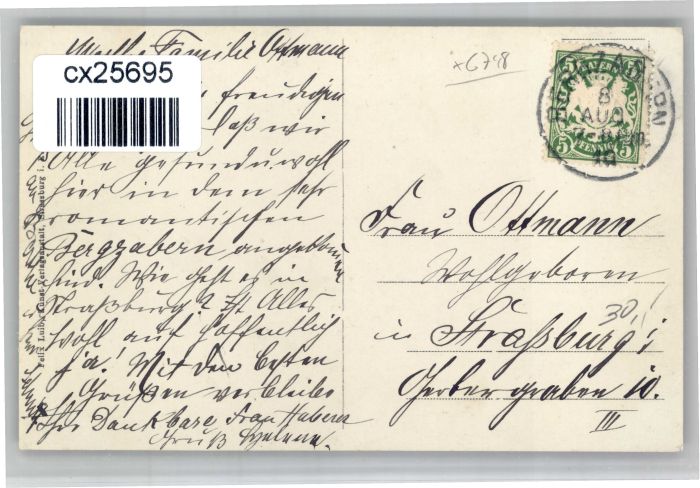 Familie Ottmann
cx25695
freudigen
daß wir
Alle gesund u. wohl
hier in dem sehr
romantischen
Bergzabern angekommen
sind. Wie geht es in
Straßburg? Ist Alles
wohl auf hoffentlich
ja! Mit den besten
Grüßen verbleibe
Ihr Dankbare Frau Haberer
Gruß Helene.
x6748
8
AUG.
10
BAYERN
5 5
PFENNIG
Frau Ottmann
Wohlgeboren
in Straßburg i
Gerbergraben 10.
III
30,